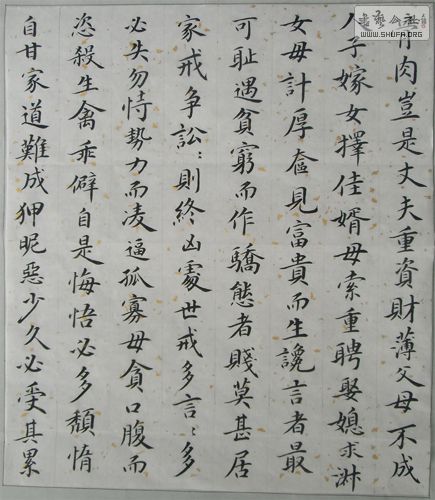 骨肉豈是丈夫重資財薄父母不成
人子嫁女擇佳婿毋索重聘娶媳求淑
女毋計厚奩見富貴而生讒言者最
可耻遇貧窮而作驕態者賤莫甚居
家戒争訟：則終凶處世戒多言：多
必失勿恃勢力而凌逼孤寡毋貪口腹而
恣殺生禽乖僻自是悔悟必多頽惰
自甘家道難成狎昵惡少久必受其累
WWW.SHUFA.ORG